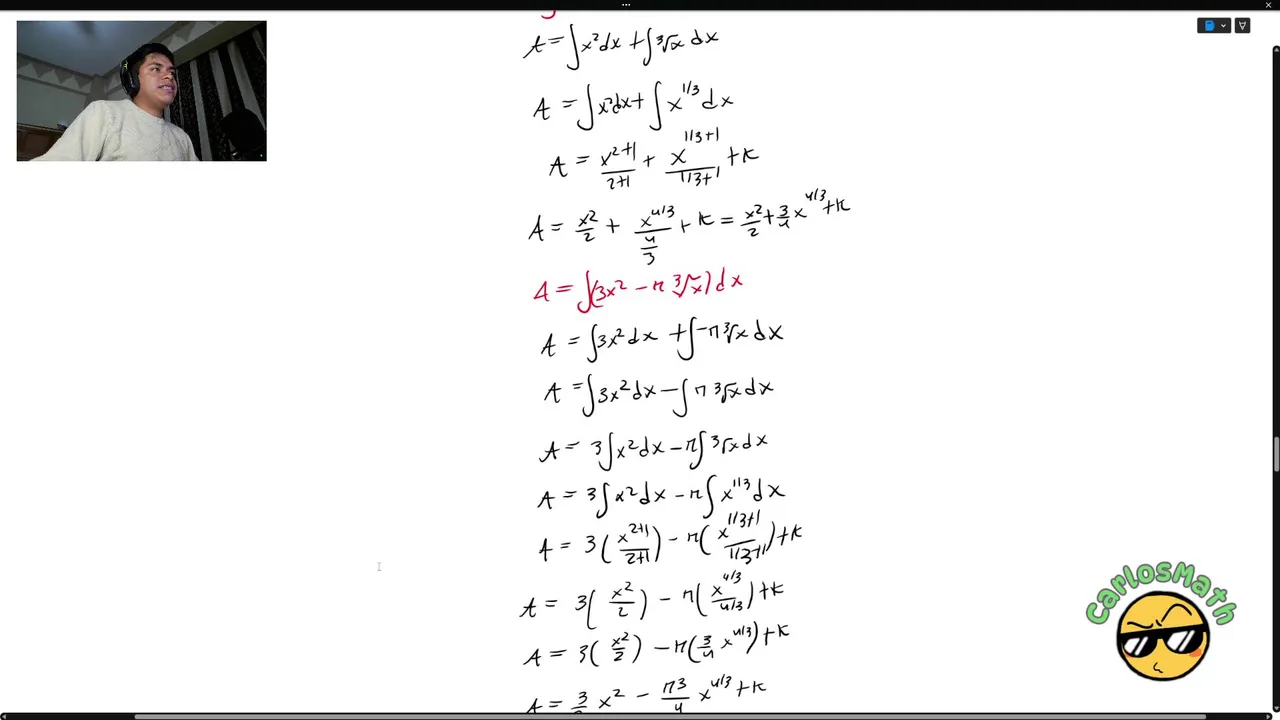 A = ∫x²dx + ∫³√x dx
A = ∫x²dx + ∫x^{1/3} dx
A = \frac{x^{2+1}}{2+1} + \frac{x^{1/3+1}}{1/3+1} + K
A = \frac{x²}{2} + \frac{x^{4/3}}{\frac{4}{3}} + K = \frac{x²}{2} + \frac{3}{4}x^{4/3} + K
A = ∫(3x² - π ³√x) dx
A = ∫3x² dx + ∫-π ³√x dx
A = ∫3x² dx - ∫π ³√x dx
A = 3∫x² dx - π∫³√x dx
A = 3∫x² dx - π∫x^{1/3} dx
A = 3(\frac{x^{2+1}}{2+1}) - π(\frac{x^{1/3+1}}{1/3+1}) + K
A = 3(\frac{x²}{2}) - π(\frac{x^{4/3}}{4/3}) + K
A = 3(\frac{x²}{2}) - π(\frac{3}{4} x^{4/3}) + K
A = \frac{3}{2} x² - \frac{π3}{4} x^{4/3} + K
CarlosMath